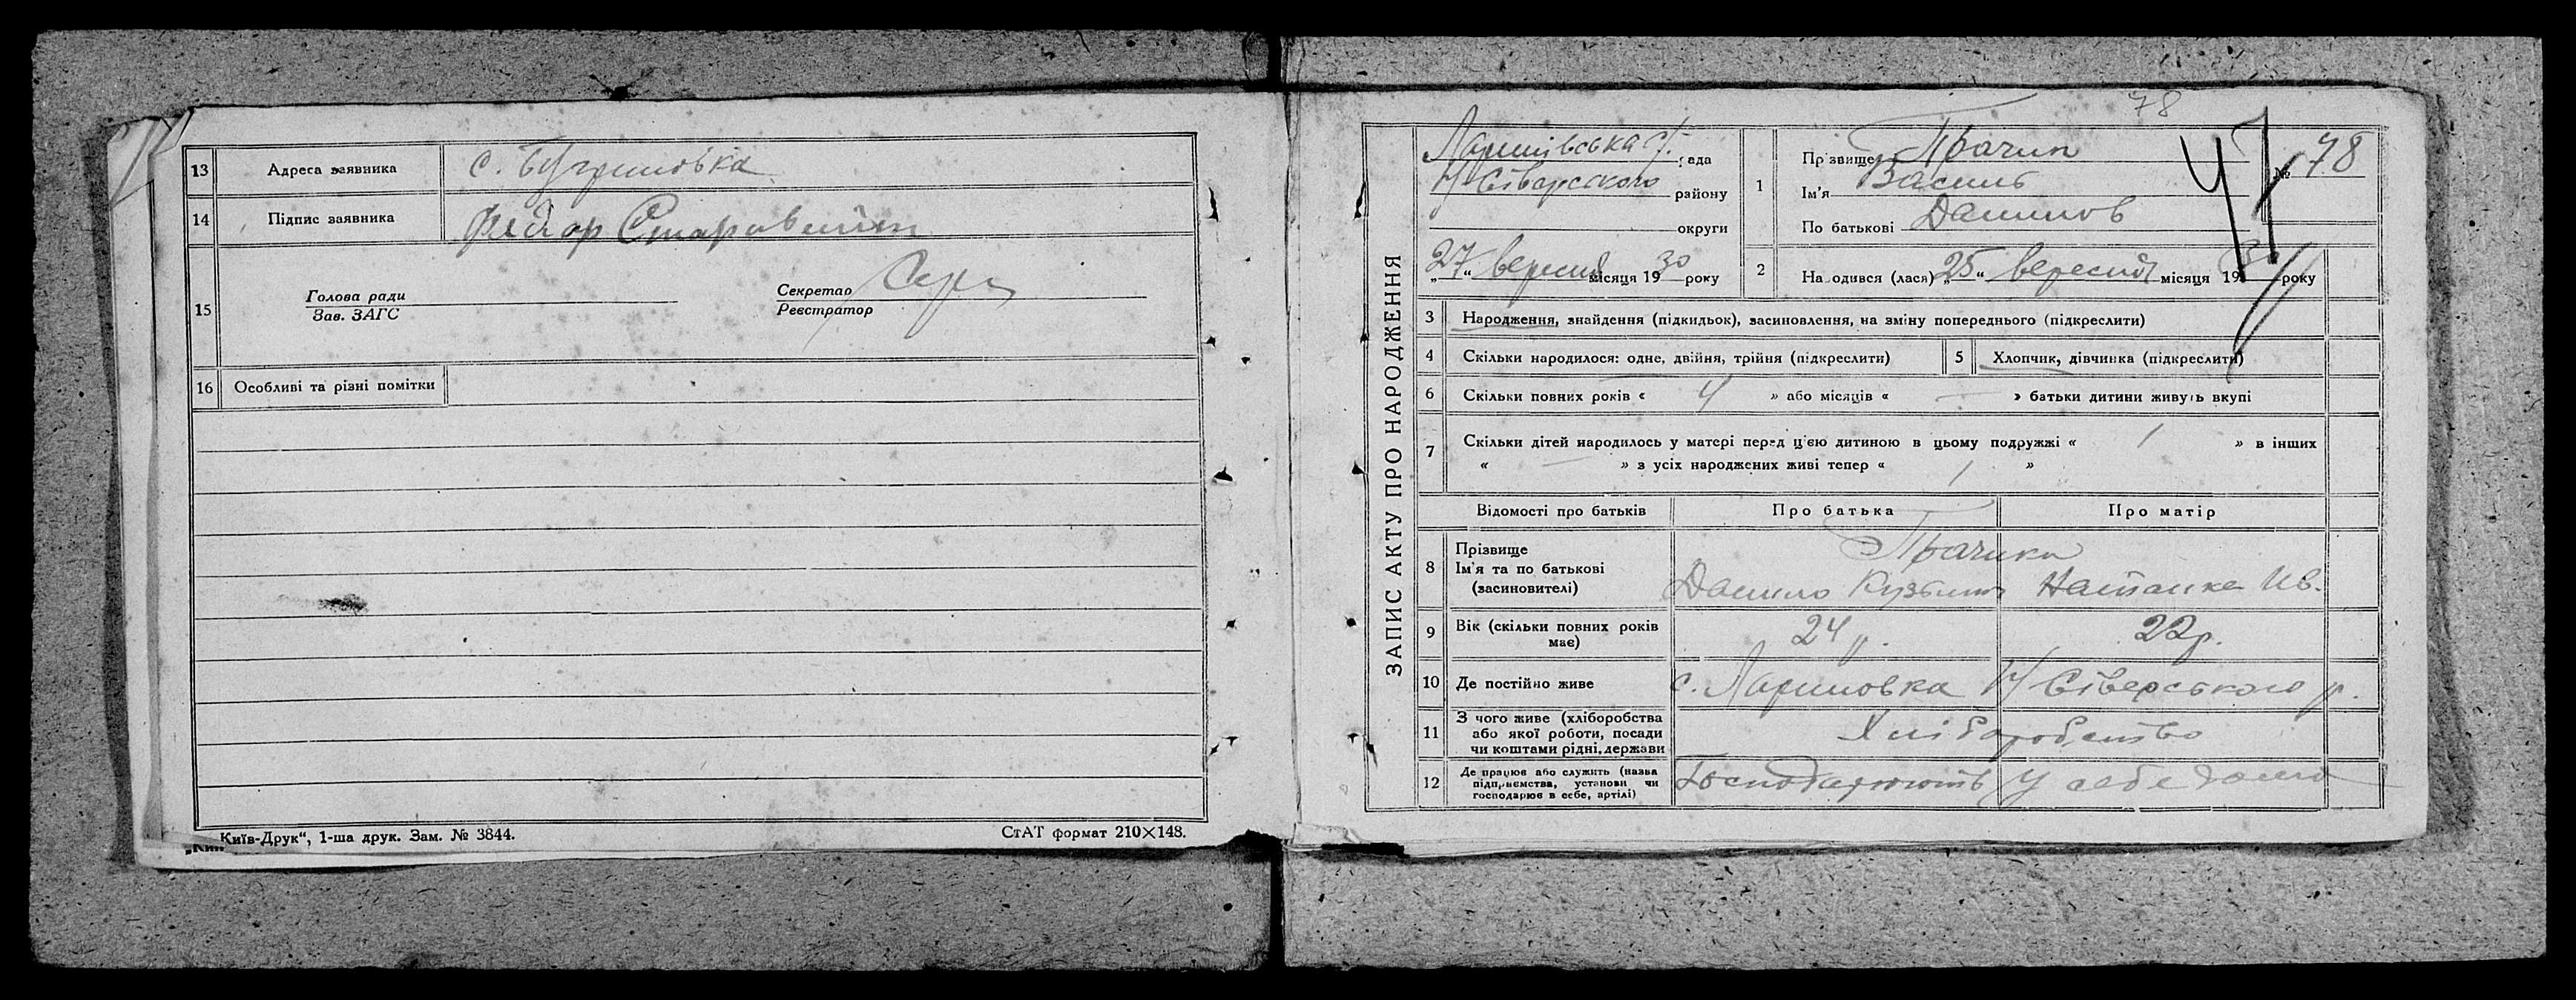 13 Адреса заявника с. Бугриновка
14 Підпис заявника Фядор
15
Голова ради
Зав. ЗАГС
Секретар
Реєстратор
16 Особливі та різні помітки
„Київ-Друк“, 1-ша друк. Зам. № 3844.
СтАТ формат 210×148.
78
47
ЗАПИС АКТУ ПРО НАРОДЖЕННЯ
рада
Н-Сіверського району
округи
„27“ вересня місяця 1930 року
1
Прізвище
Ім'я Василь
По батькові Данилов
№ 78
2 Народився (лася) „25“ вересня місяця 1930 року
3 Народження, знайдення (підкидьок), засиновлення, на зміну попереднього (підкреслити)
4 Скільки народилося: одне, двійня, трійня (підкреслити)
5 Хлопчик, дівчинка (підкреслити)
6 Скільки повних років « 4 » або місяців « — » батьки дитини живуть вкупі
7 Скільки дітей народилось у матері перед цією дитиною в цьому подружжі « 1 » в інших
« — » з усіх народжених живі тепер « 1 »
Відомості про батьків Про батька Про матір
8 Прізвище
Ім'я та по батькові Данило Ів.
(засиновителі)
9 Вік (скільки повних років має) 24 р. 22 р.
10 Де постійно живе с. Лариновка Н/Сіверського р.
11 З чого живе (хліборобства
або якої роботи, посади Хліборобство
чи коштами рідні, держави
12 Де працює або служить (назва
підприємства, установи чи Господарюють у себе дома
господарює в себе, артілі)